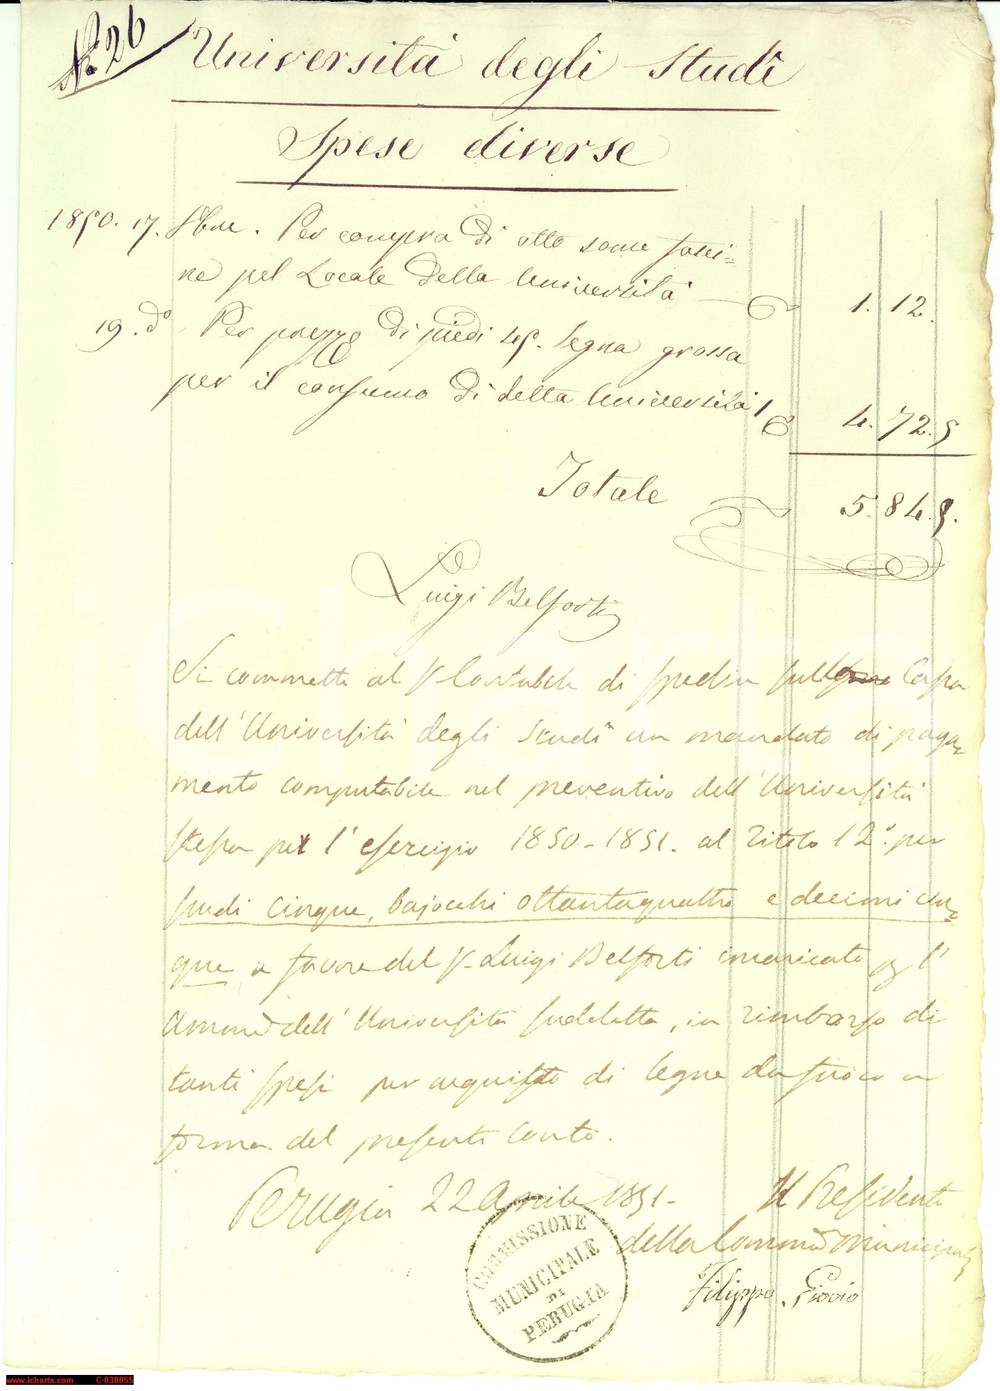 No. 26
Università degli Studî
Spese diverse
1850. 17. 8bre. Per compra di otto some fasci=
ne pel Locale della Università 1. 12.
19. do Per prezzo di piedi 45. legna grossa
per il consumo di detta Università 4. 72. 5
Totale 5. 84. 5.
Luigi Belforti
Si commette al Sr. Contabile di spedire sulla Cassa
dell'Università degli Studî un mandato di paga=
mento computabile nel preventivo dell'Università
stessa per l'esercizio 1850-1851. al titolo 12°. per
scudi cinque, bajocchi ottantaquattro e decimi cin=
que a favore del Sr. Luigi Belforti incaricato per l'
Ammne dell'Università sudetta, in rimborso di
tanti spesi per acquisto di legne da fuoco a
forma del presente conto.
Perugia 22 Aprile 1851.
Il Presidente
della Commne Municipale
Filippo Giovio
COMMISSIONE
MUNICIPALE
DI
PERUGIA
www.icharta.com C-038855